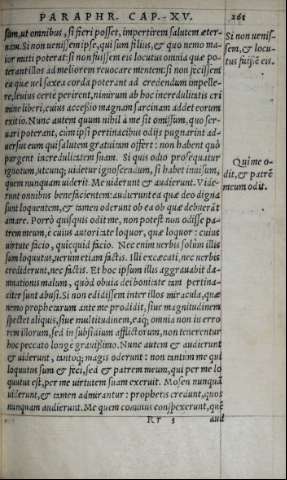 PARAPHR. CAP. XV. 261
sum, ut omnibus, si fieri posset, impertirem salutem æter-
nam. Si non venissem ipse, qui sum filius, & quo nemo ma-
ior mitti poterat: si non fuissem eis locutus omnia quæ po-
terant illos ad meliorem revocare mentem: si non fecissem
ea quæ vel saxea corda poterant ad credendum impelle-
re, huius certe perirent, nimirum ab hoc incredulitatis cri
mine liberi, cuius accessio magnam sarcinam addet eorum
exitio. Nunc autem quum nihil à me sit omissum, quo ser-
uari poterant, cum ipsi pertinacibus odijs pugnarint ad-
versus eum qui salutem gratuitam offert: non habent quò
purgent incredulitatem suam. Si quis odio prosequatur
ignotum, utcunque videtur ignoscendum, si habet inuisum,
quem nunquam viderit. Me viderunt & audierunt. Vide-
runt omnibus benefacientem: audierunt ea quæ deo digna
sunt loquentem, & tamen oderunt ob ea ob quæ debuerāt
amare. Porrò quisquis odit me, non potest non odisse pa-
trem meum, è cuius autoritate loquor, quæ loquor: cuius
virtute facio, quicquid facio. Nec enim verbis solum illis
sum loquutus, verum etiam factis. Illi excæcati, nec verbis
crediderunt, nec factis. Et hoc ipsum illis aggravabit da-
mnationis malum, quòd obuia dei bonitate tam pertina-
citer sunt abusi. Si non edidissem inter illos miracula, quæ
nemo prophetarum ante me prodidit, siue magnitudinem
spectet aliquis, siue multitudinem, eaque omnia non in erro
rem illorum, sed in subsidium afflictorum, non tenerentur
hoc peccato longè gravissimo. Nunc autem & audierunt
& uiderunt, tantoque magis oderunt: non tantum me qui
loquutus sum & feci, sed & patrem meum, qui per me lo
quutus est, per me uirtutem suam exeruit. Mosen nunquā
uiderunt, & tamen admirantur: prophetis credunt, quos
nunquam audierunt. Me quem comitus conspexerunt, quē
Rr 3 aud
Si non uenis-
sem, & locu-
tus fuissē eis.
Qui me o-
dit, & patrē
meum odit.